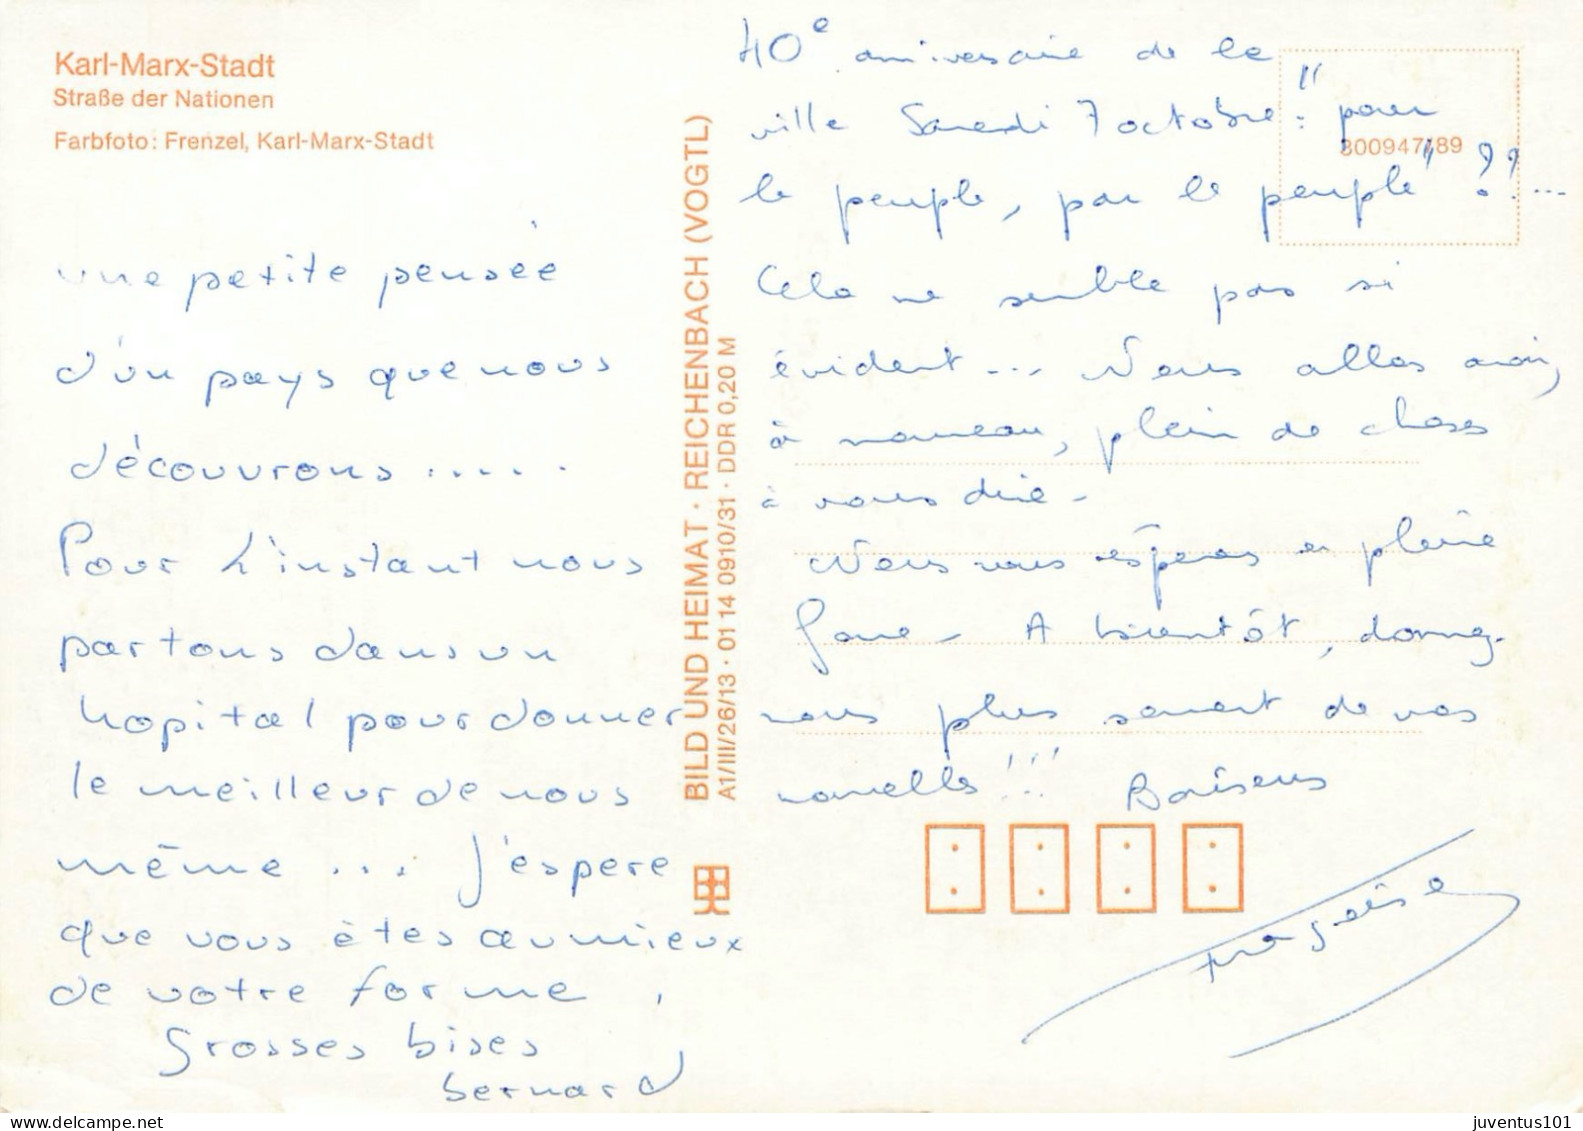 Karl-Marx-Stadt
Straße der Nationen
Farbfoto: Frenzel, Karl-Marx-Stadt
une petite pensée
d'un pays que nous
découvrons.....
Pour l'instant nous
partons dans un
hopital pour donner
le meilleur de nous
même ... J'espere
que vous êtes au mieux
de votre forme,
Grosses bises
bernard
BILD UND HEIMAT · REICHENBACH (VOGTL)
A1/III/26/13 · 01 14 0910/31 · DDR 0,20 M
300947/89
40e anniversaire de la
ville Samedi 7 octobre : "pour
le peuple, par le peuple" ??...
Cela ne semble pas si
évident ... Nous allons avoir,
à nouveau, plein de choses
à vous dire -
Nous vous espérons en pleine
forme - A bientôt, donnez-
nous plus souvent de vos
nouvelles !!! Baisers
juventus101